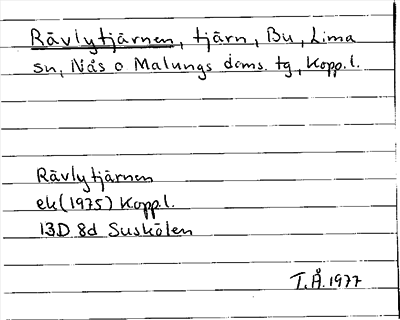 Rävlytjärnen, tjärn, Bu, Lima
sn, Nås o Malungs doms. tg, Kopp.l.
Rävlytjärnen
ek(1975) Kopp.l.
13D 8d Suskölen
T.Å.1977